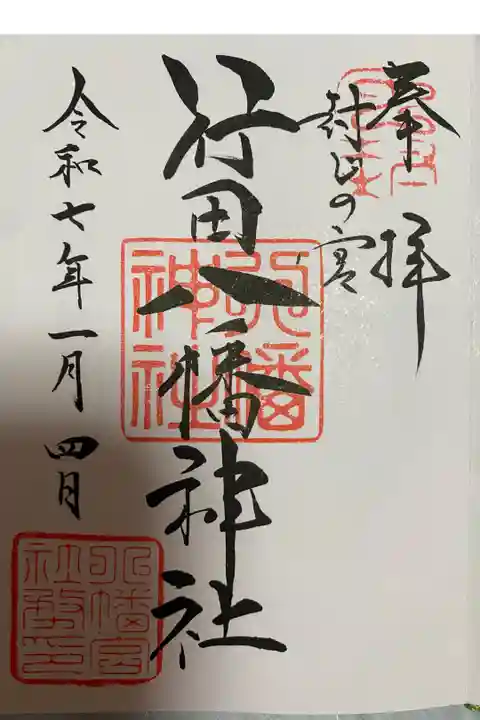 奉拝
封じの宮
行田八幡神社
八幡神社
令和七年一月四日
八幡宮社務印